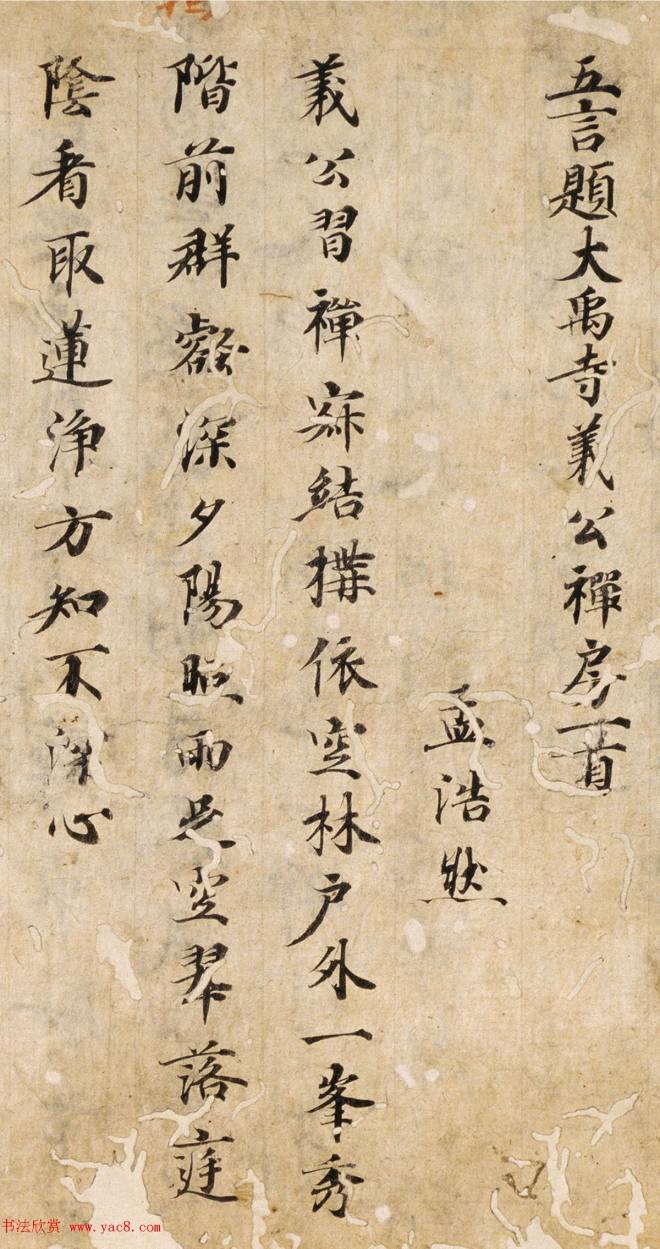 五言題大禹寺義公禪房一首
孟浩然
義公習禪寂結搆依空林户外一峯秀
階前群壑深夕陽照雨足空翠落庭
陰看取蓮淨方知不深心
书法欣赏 www.yac8.com